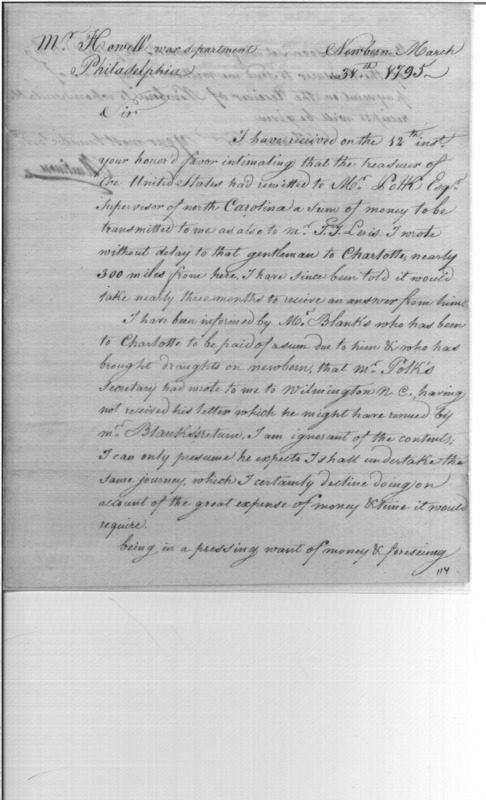 Mr. Howell war department Newbern March
Philadelphia 31th 1795
Sir
I have received on the 12th inst.
your honor'd favor intimating that the treasurer of
the United States had remitted to Mr. Polk Esqr.
Supervisor of north Carolina a sum of money to be
transmitted to me as also to mr. Lewis. I wrote
without delay to that gentleman to Charlotte, nearly
300 miles from here, I have since been told it would
take nearly three months to receive an answer from him.
I have been informed by Mr. Blanks who has been
to Charlotte to be paid of a sum due to him & who has
brought draughts on newbern, that mr. Polk's
Secretary had wrote to me to Wilmington N C., having
not received his letter which he might have received by
mr. Blanks's return, I am ignorant of the contents;
I can only presume he expects I shall undertake the
same journey, which I certainly decline doing on
account of the great expense of money & time it would
require.
being in a pressing want of money & foreseeing
114